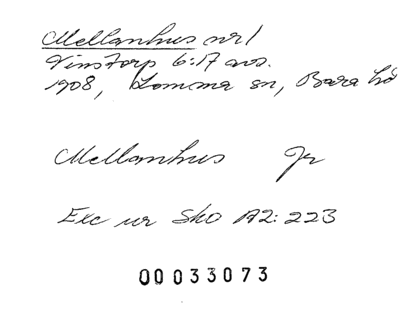 Mellanhus nr 1
Vinstorp 6:17 avs.
1908, Lomma sn, Bara hd
Mellanhus Gr
Exc ur Sko A2: 223
00033073